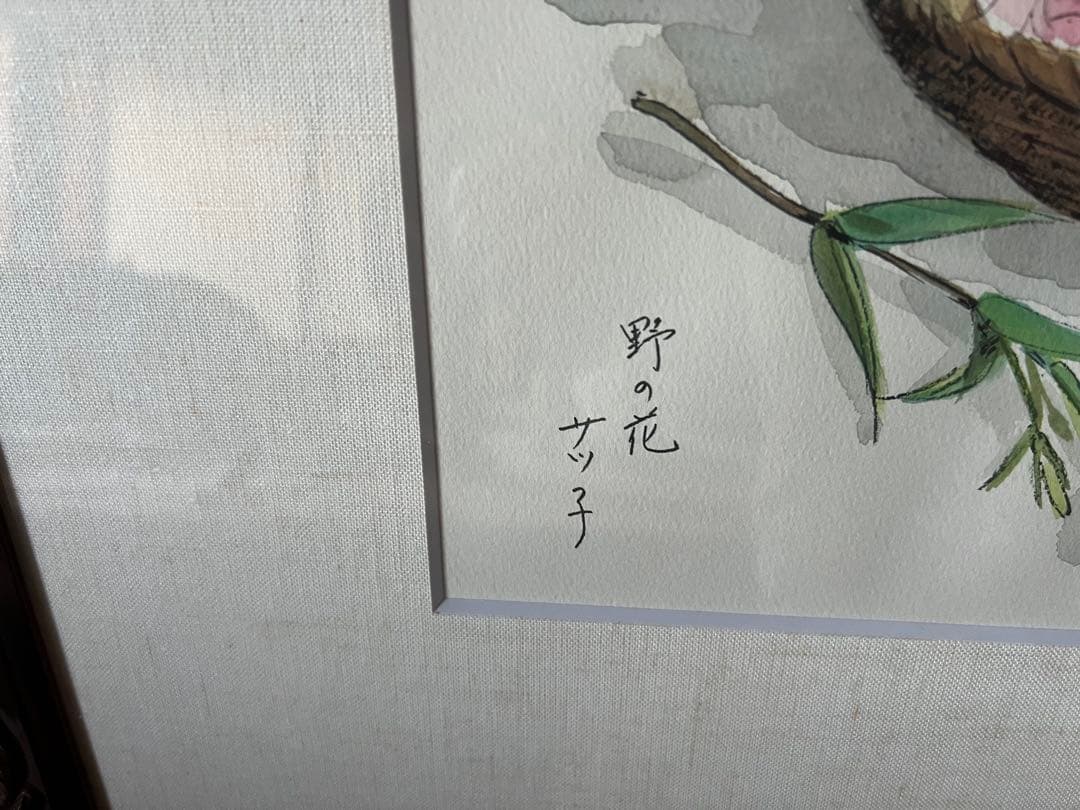 野の花
サツ子